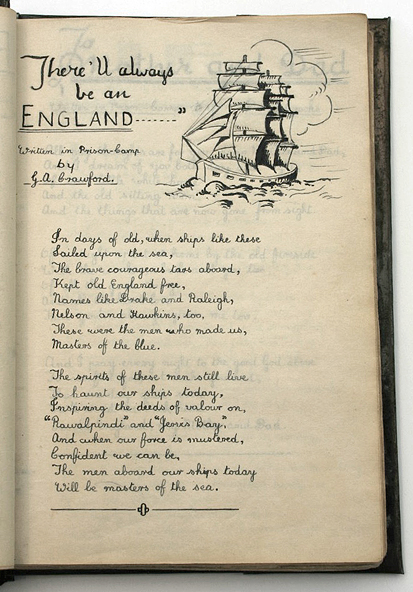 There'll always
be an
ENGLAND-------"
Written in Prison-Camp
by
G.A. Crawford.
In days of old, when ships like these
Sailed upon the sea,
The brave courageous tars aboard,
Kept old England free,
Names like Drake and Raleigh,
Nelson and Hawkins, too,
These were the men who made us,
Masters of the blue.
The spirits of these men still live
To haunt our ships today,
Inspiring the deeds of valour on,
"Rawalpindi" and "Jervis Bay",
And when our force is mustered,
Confident we can be,
The men aboard our ships today
Will be masters of the sea.